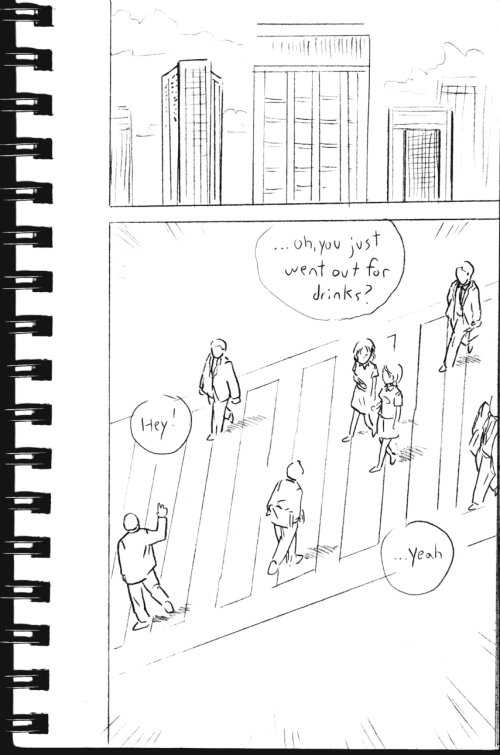 ...oh, you just
went out for
drinks?
Hey!
...yeah